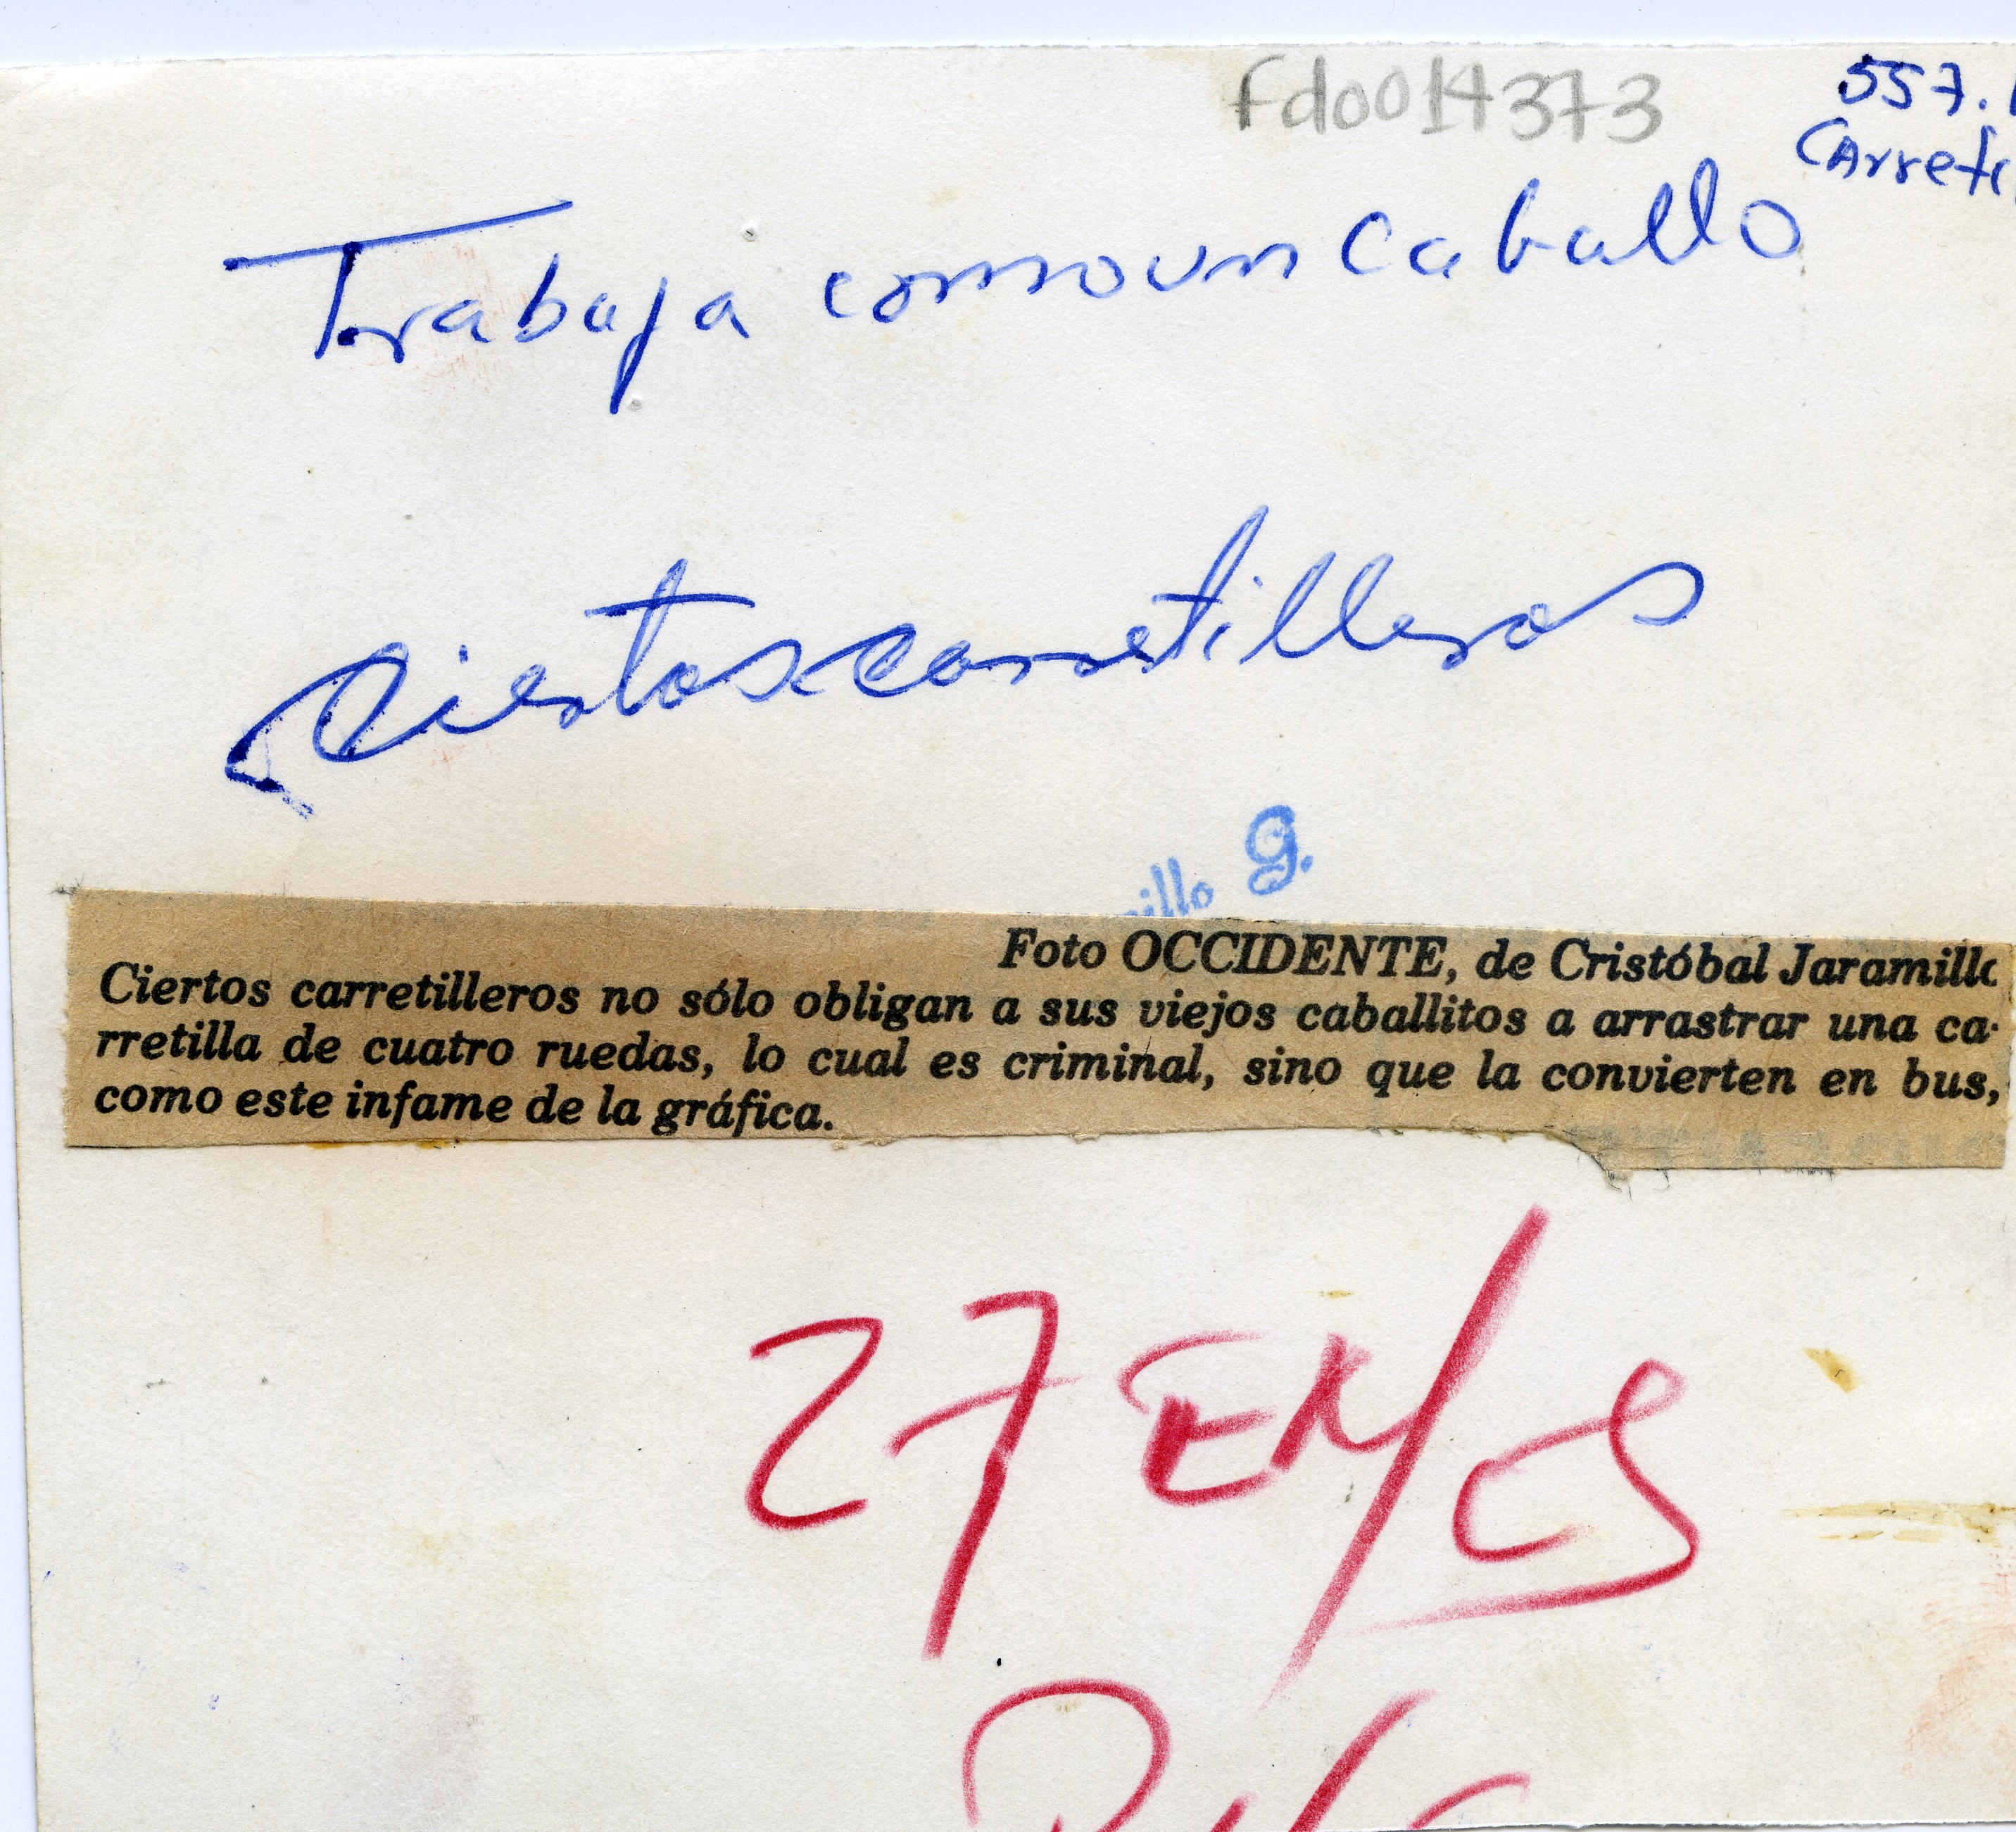 fd0014373
557.
Carreti
Trabaja como un caballo
Ciertos carretilleros
illo G.
Foto OCCIDENTE, de Cristóbal Jaramillo
Ciertos carretilleros no sólo obligan a sus viejos caballitos a arrastrar una ca-
rretilla de cuatro ruedas, lo cual es criminal, sino que la convierten en bus,
como este infame de la gráfica.
27 EN/